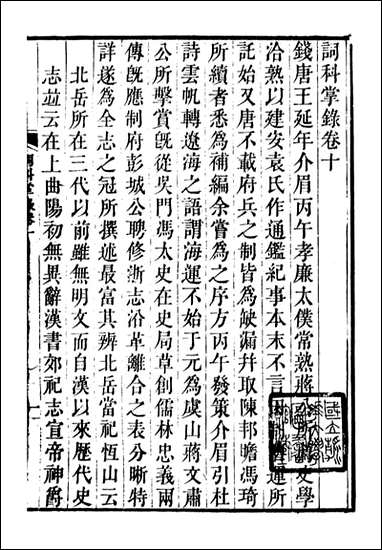 詞科掌錄卷十
錢唐王延年介眉丙午孝廉太僕常熟蔣史學
洽熟以建安袁氏作通鑑紀事本末不言運所
託始又唐不載府兵之制皆為缺漏幷取陳邦瞻馮琦
所續者悉為補編余嘗為之序方丙午發策介眉引杜
詩雲帆轉遼海之語謂海運不始于元為虞山蔣文肅
公所擊賞旣從吳門馮太史在史局草創儒林忠義兩
傳旣應制府彭城公聘修浙志沿革離合之表分晰特
詳遂為全志之冠所撰述最富其辨北岳當祀恆山云
北岳所在三代以前雖無明文而自漢以來歷代史
志竝云在上曲陽初無異辭漢書郊祀志宣帝神爵